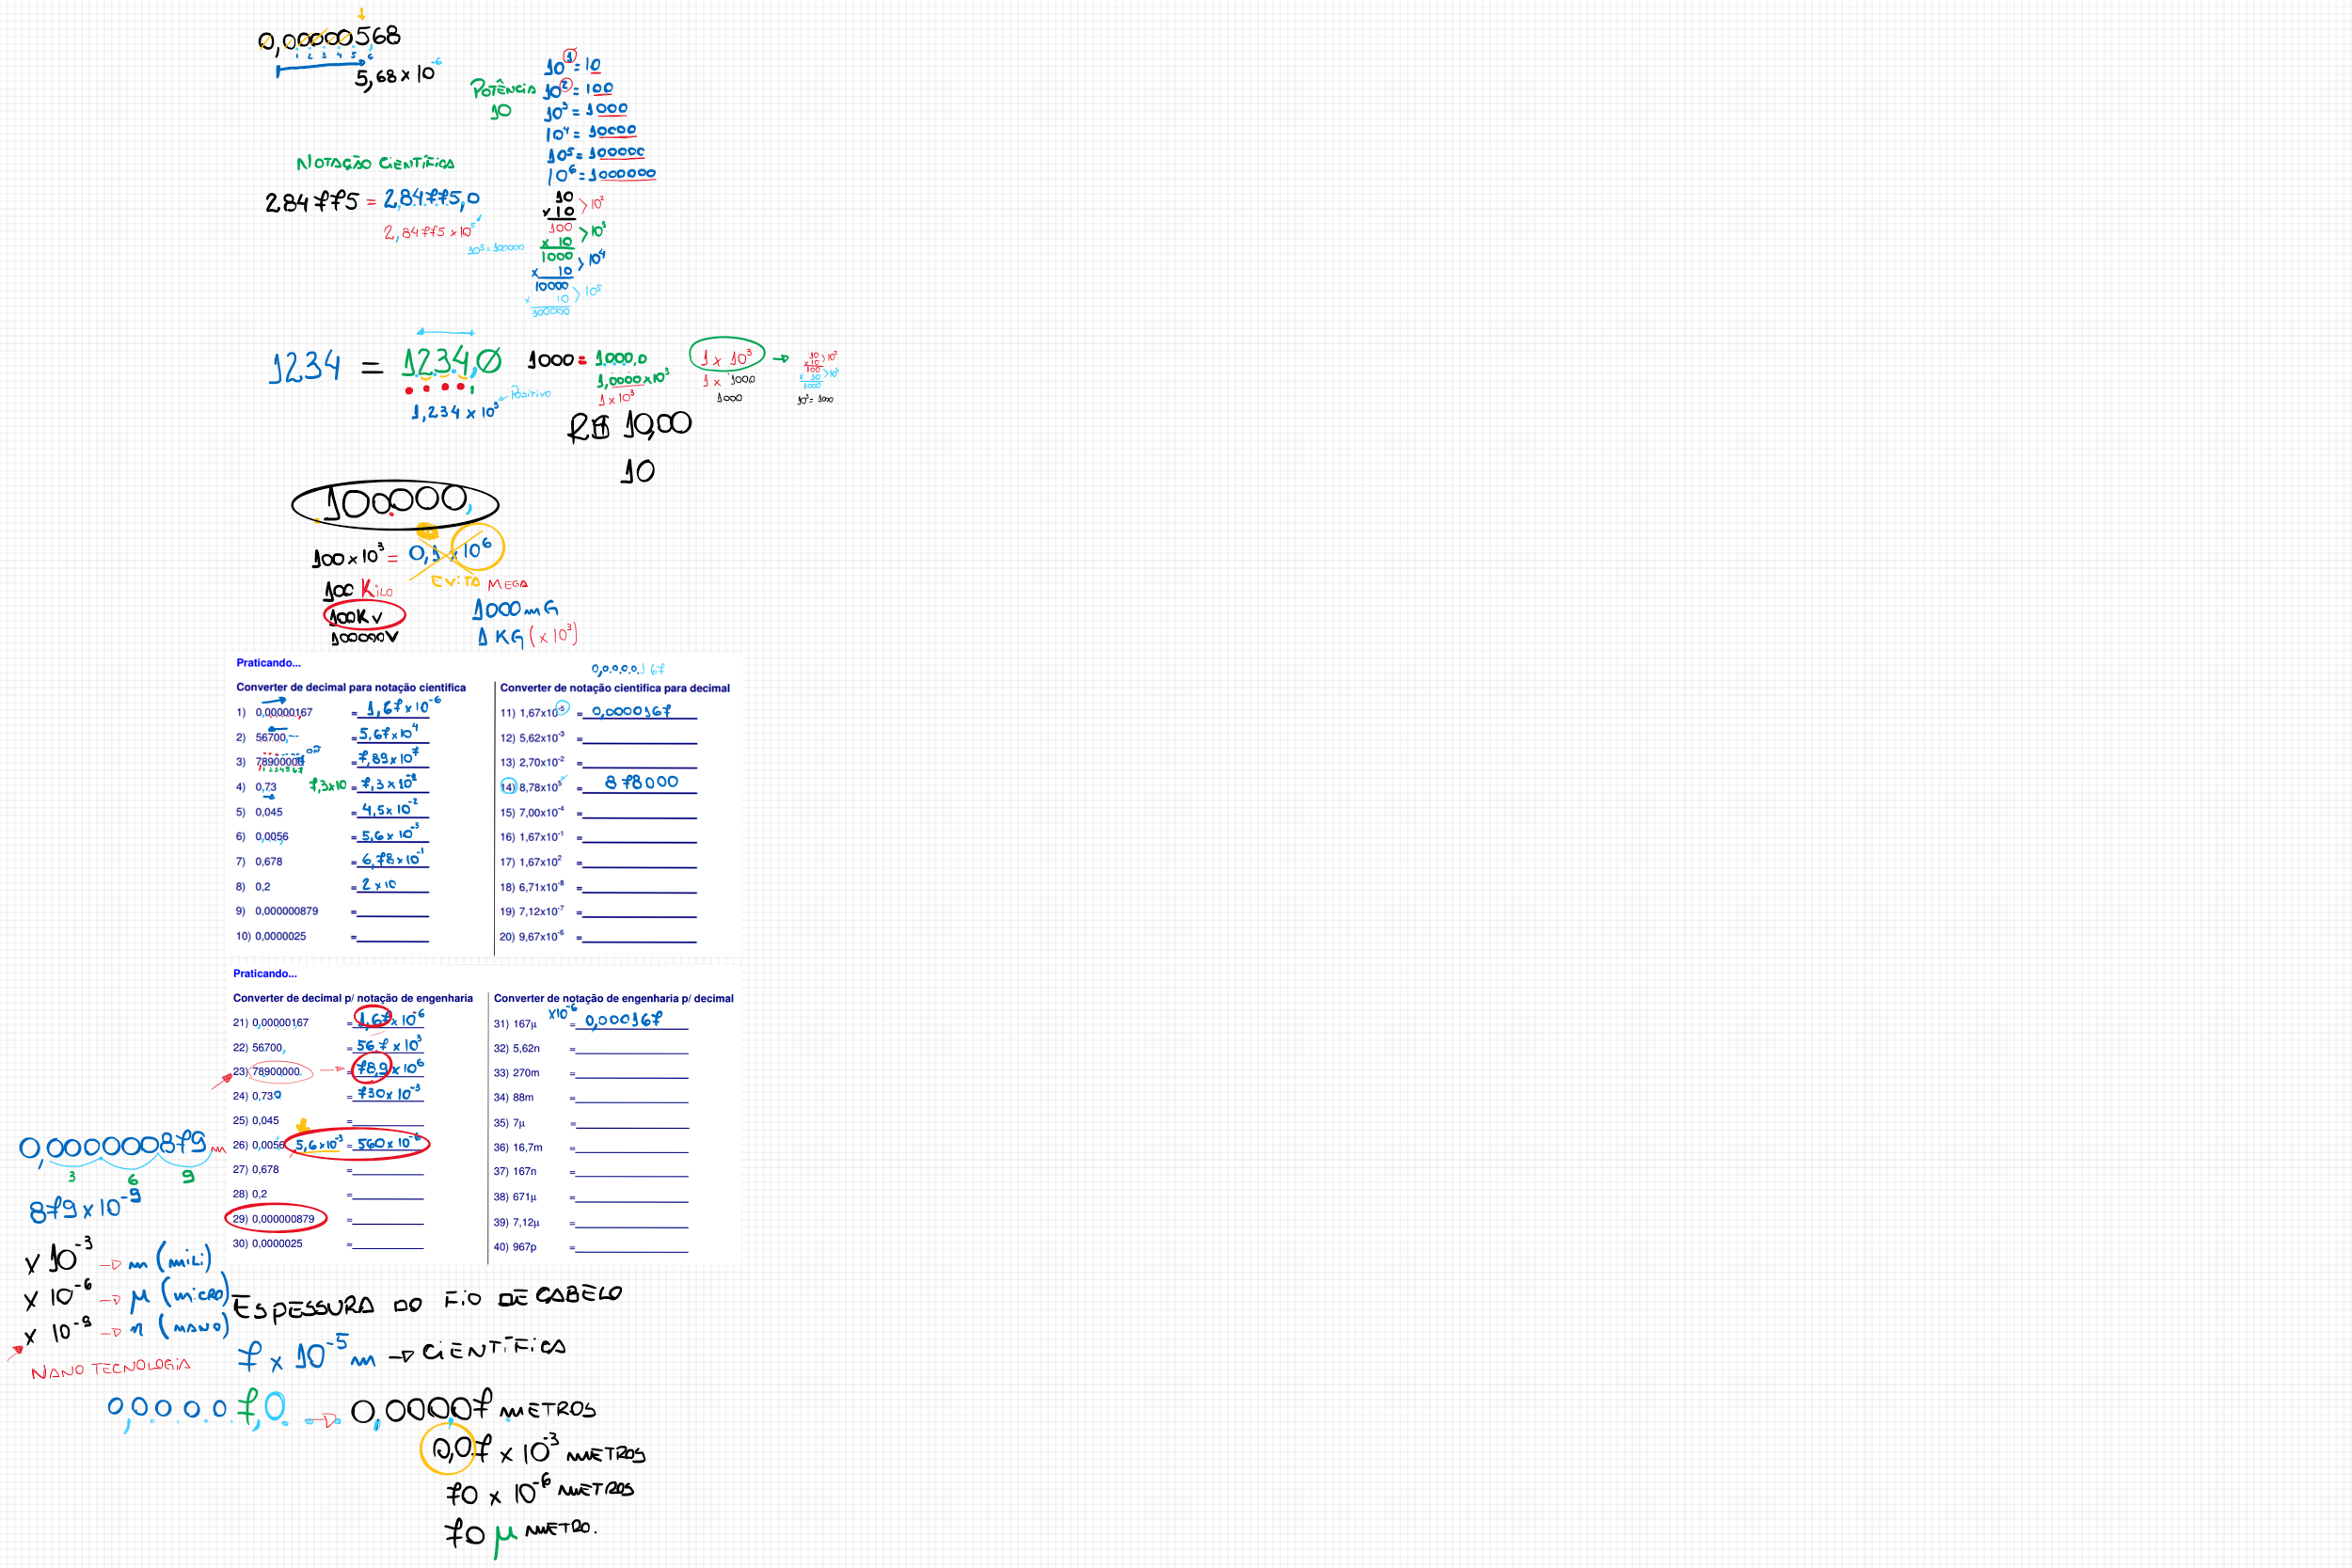 0,00000568
1 2 3 4 5 6
5,68 x 10⁻⁶
POTÊNCIA
10
10¹ = 10
10² = 100
10³ = 1000
10⁴ = 10000
10⁵ = 100000
10⁶ = 1000000
NOTAÇÃO CIENTÍFICA
284775 = 2,84775,0
2,84775 x 10⁵
10⁵ = 100000
10
x 10 > 10²
100
x 10 > 10³
1000
x 10 > 10⁴
10000
x 10 > 10⁵
100000
1234 = 1234,0
1,234 x 10³ POSITIVO
1000 = 1000,0
1,0000 x 10³
1 x 10³
1 x 10³
1 x 1000
1000
10
x 10 > 10²
100
x 10 > 10³
1000
10³ = 1000
R$ 10,00
10
100.000,
100 x 10³ = 0,1 x 10⁶
EVITA MEGA
100 KILO
100KV
100000V
1000mG
1 KG (x 10³)
Praticando...
0,0.0.0.0.167
Converter de decimal para notação cientifica
1) 0,00000167 = 1,67 x 10⁻⁶
2) 56700, = 5,67 x 10⁴
3) 78900000 = 7,89 x 10⁷
1 2 3 4 5 6 7
4) 0,73 7,3x10 = 7,3 x 10⁻¹
5) 0,045 = 4,5 x 10⁻²
6) 0,0056 = 5,6 x 10⁻³
7) 0,678 = 6,78 x 10⁻¹
8) 0,2 = 2 x 10
9) 0,000000879 =
10) 0,0000025 =
Converter de notação cientifica para decimal
11) 1,67x10⁻⁵ = 0,0000167
12) 5,62x10⁻³ =
13) 2,70x10⁻² =
14) 8,78x10⁵ = 878000
15) 7,00x10⁻⁴ =
16) 1,67x10⁻¹ =
17) 1,67x10² =
18) 6,71x10⁻⁸ =
19) 7,12x10⁻⁷ =
20) 9,67x10⁻⁶ =
Praticando...
Converter de decimal p/ notação de engenharia
21) 0,00000167 = 1,67 x 10⁻⁶
22) 56700, = 56,7 x 10³
23) 78900000 = 78,9 x 10⁶
24) 0,730 = 730 x 10⁻³
25) 0,045 =
26) 0,0056 5,6 x 10⁻³ = 560 x 10⁻⁶
27) 0,678 =
28) 0,2 =
29) 0,000000879 =
30) 0,0000025 =
Converter de notação de engenharia p/ decimal
x10⁻⁶
31) 167µ = 0,000167
32) 5,62n =
33) 270m =
34) 88m =
35) 7µ =
36) 16,7m =
37) 167n =
38) 671µ =
39) 7,12µ =
40) 967p =
0,000000879 m
3 6 9
879 x 10⁻⁹
x 10⁻³ → m (MILI)
x 10⁻⁶ → µ (MICRO)
x 10⁻⁹ → n (NANO)
NANO TECNOLOGIA
ESPESSURA DO FIO DE CABELO
7 x 10⁻⁵ m → CIENTÍFICA
0,0.0.0.0.7,0. → 0,00007 METROS
0,07 x 10⁻³ METROS
70 x 10⁻⁶ METROS
70 µ METRO.